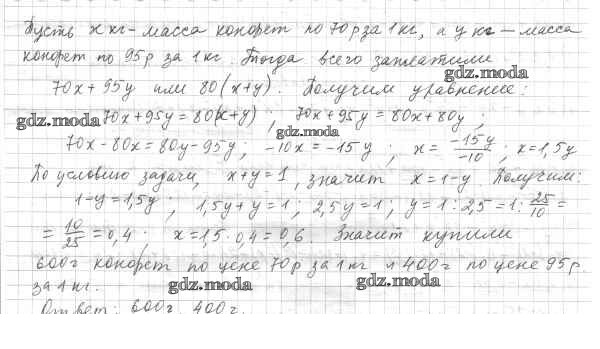 Пусть x кг – масса конфет по 70 р за 1 кг, а y кг – масса
конфет по 95 р за 1 кг. Тогда всего заплатили
gdz.moda
70x + 95y или 80(x+y). Получим уравнение:
gdz.moda 70x+95y = 80(x+y), 70x+95y = 80x+80y,
gdz.moda
70x-80x=80y-95y; -10x=-15y; x=\frac{-15y}{-10}; x=1,5y
По условию задачи, x+y=1, значит x=1-y. Получим:
1-y=1,5y; 1,5y+y=1; 2,5y=1; y=1:2,5=1:\frac{25}{10}=
=\frac{10}{25}=0,4; x=1,5·0,4=0,6. Значит купили
600г конфет по цене 70р за 1 кг и 400г по цене 95р.
за 1 кг. gdz.moda gdz.moda
Ответ: 600г, 400г.